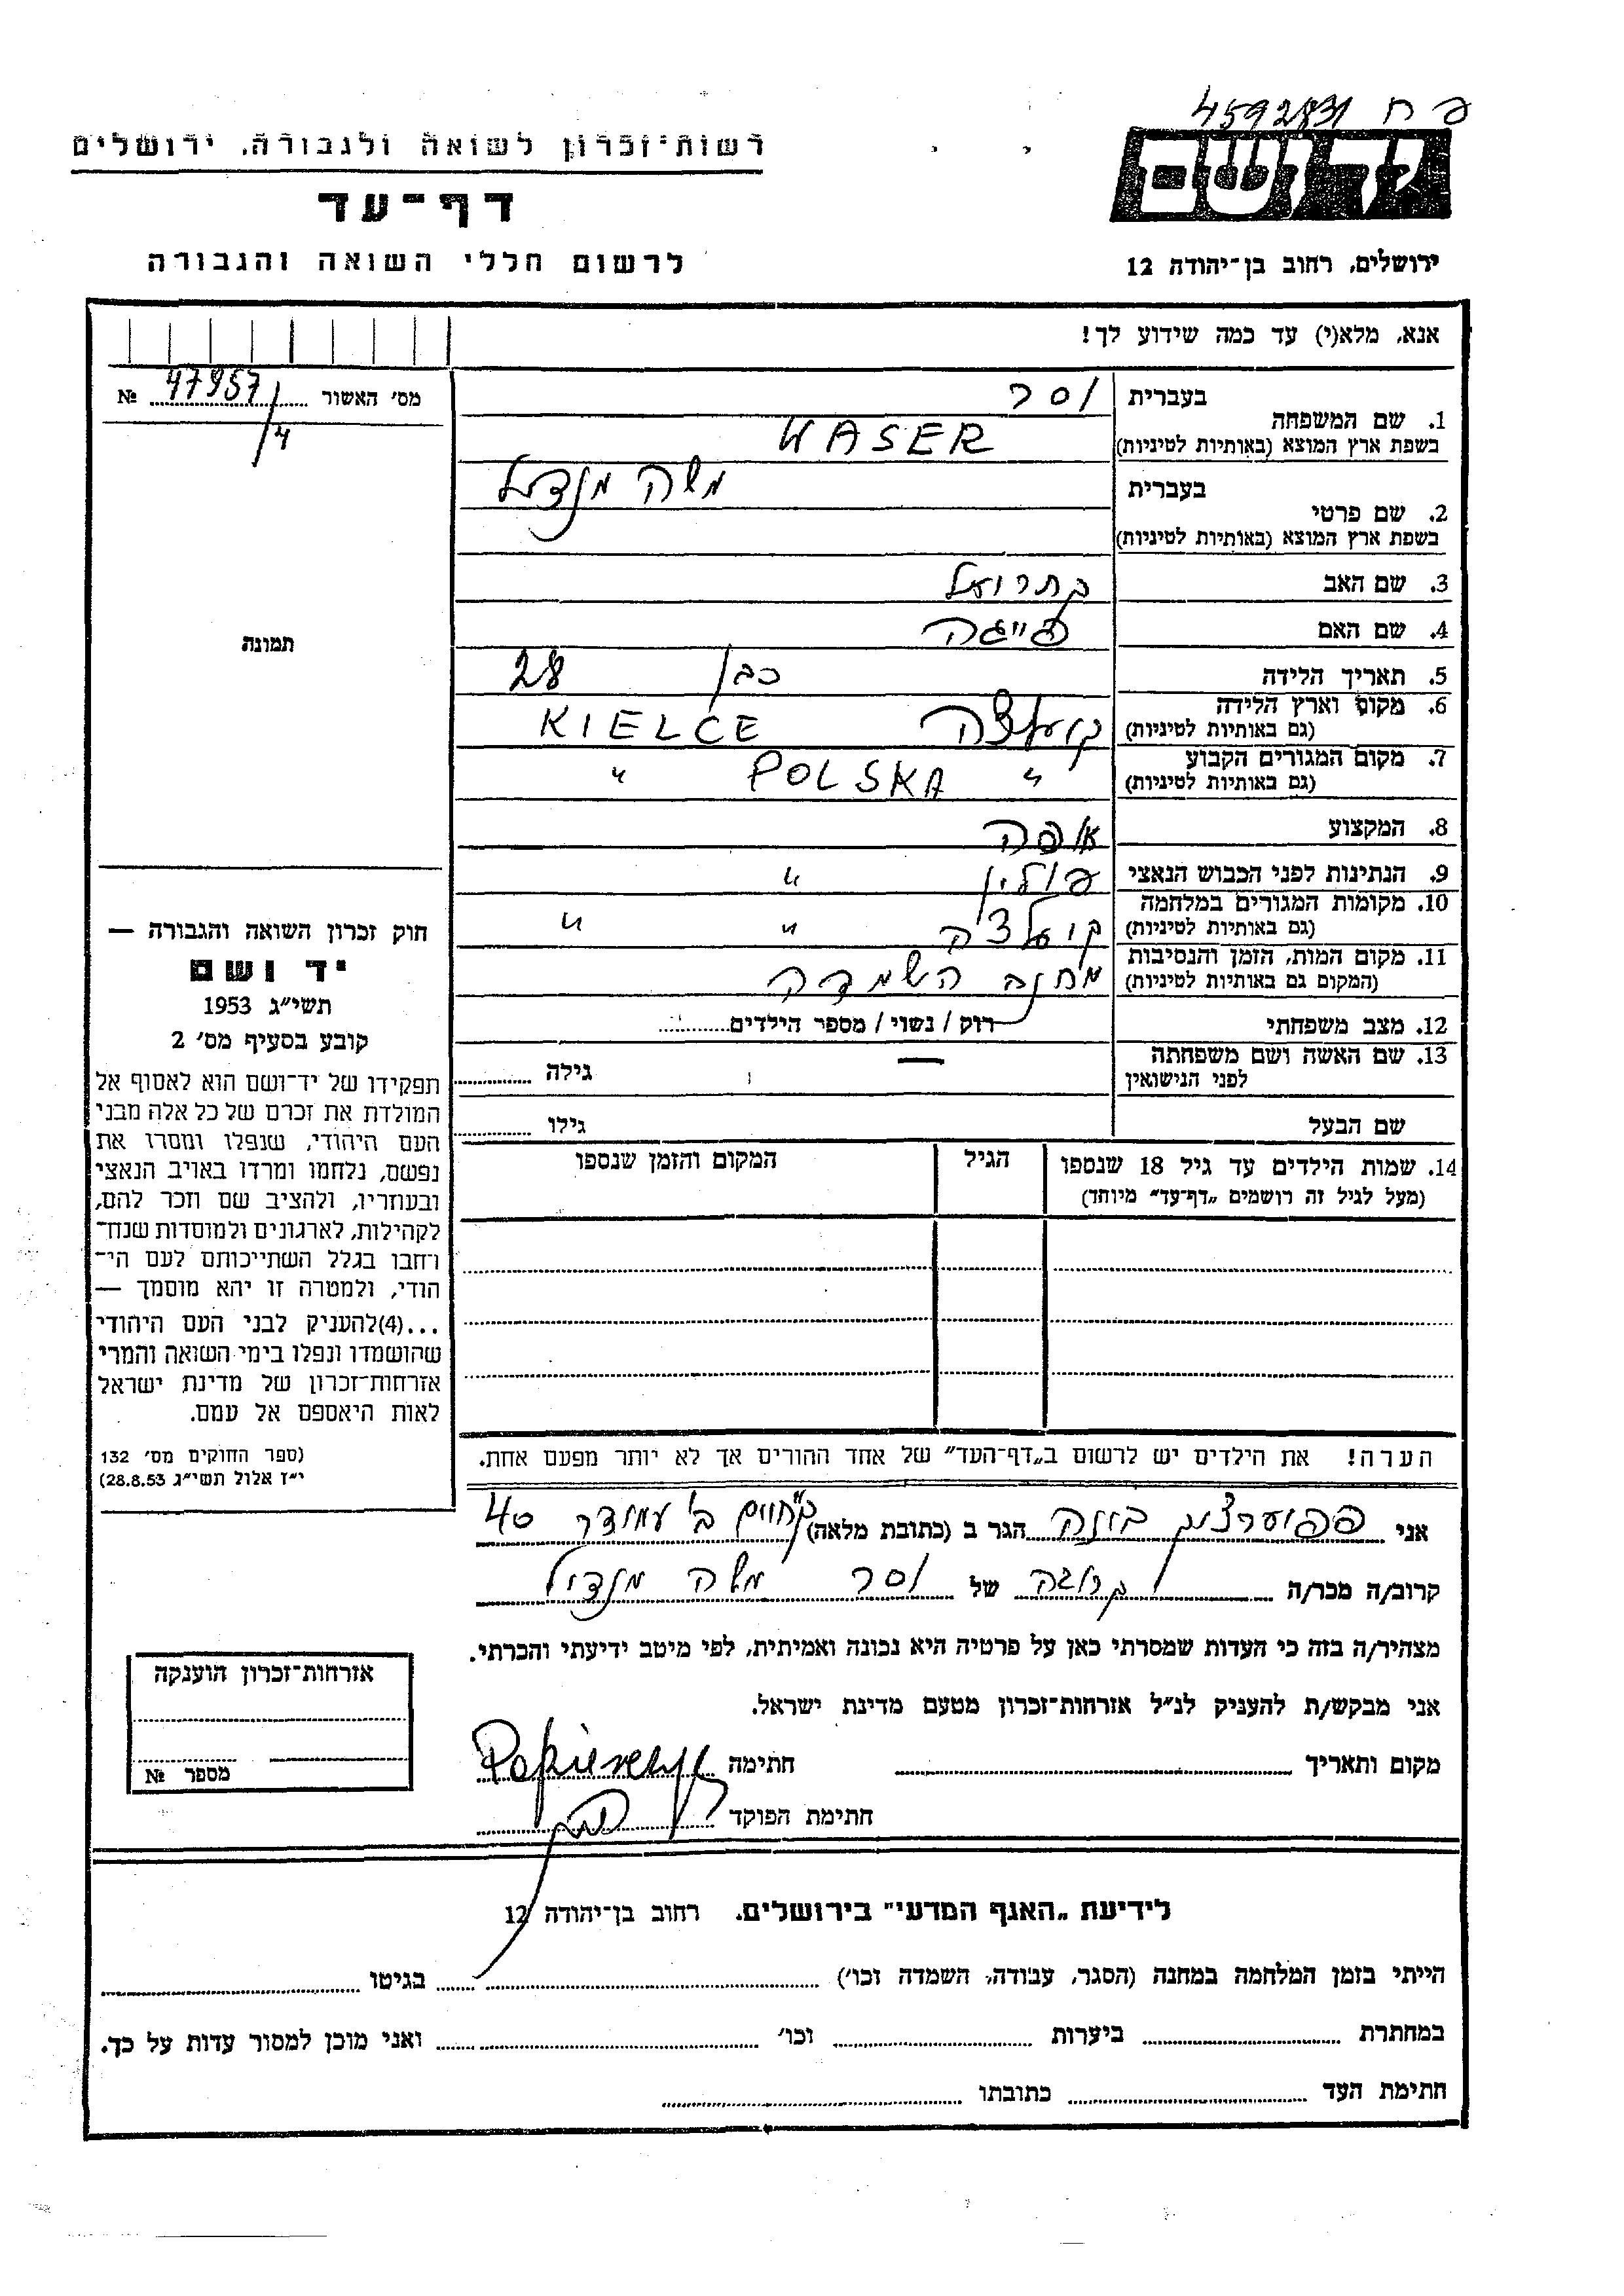 פ ח 4592831
יד ושם
ירושלים, רחוב בן־יהודה 12
רשות־זכרון לשואה ולגבורה, ירושלים
דף־עד
לרשום חללי השואה והגבורה
אנא, מלא(י) עד כמה שידוע לך!
מס׳ האשור 47957 №
4
תמונה
1. שם המשפחה
בעברית וסר
בשפת ארץ המוצא (באותיות לטיניות) WASER
2. שם פרטי
בעברית משה מנדל
בשפת ארץ המוצא (באותיות לטיניות)
3. שם האב
4. שם האם פייגה
5. תאריך הלידה כבן 28
6. מקום וארץ הלידה KIELCE
(גם באותיות לטיניות)
7. מקום המגורים הקבוע " POLSKA "
(גם באותיות לטיניות)
8. המקצוע אופה
9. הנתינות לפני הכבוש הנאצי פולין "
10. מקומות המגורים במלחמה " "
(גם באותיות לטיניות)
11. מקום המות, הזמן והנסיבות מחנה השמדה
(המקום גם באותיות לטיניות)
12. מצב משפחתי רוק / נשוי / מספר הילדים
13. שם האשה ושם משפחתה — גילה
לפני הנישואין
שם הבעל גילו
14. שמות הילדים עד גיל 18 שנספו הגיל המקום והזמן שנספו
(מעל לגיל זה רושמים „דף־עד״ מיוחד)
הערה! את הילדים יש לרשום ב„דף־העד״ של אחד ההורים אך לא יותר מפעם אחת.
חוק זכרון השואה והגבורה —
יד ושם
תשי״ג 1953
קובע בסעיף מס׳ 2
תפקידו של יד־ושם הוא לאסוף אל
המולדת את זכרם של כל אלה מבני
העם היהודי, שנפלו ומסרו את
נפשם, נלחמו ומרדו באויב הנאצי
ובעוזריו, ולהציב שם וזכר להם,
לקהילות, לארגונים ולמוסדות שנח־
רחבו בגלל השתייכותם לעם הי־
הודי, ולמטרה זו יהא מוסמך —
...(4) להעניק לבני העם היהודי
שהושמדו ונפלו בימי השואה והמרי
אזרחות־זכרון של מדינת ישראל
לאות היאספם אל עמם.
(ספר החוקים מס׳ 132
י״ז אלול תשי״ג 28.8.53)
אני הגר ב (כתובת מלאה) 40
קרוב/ה מכר/ה קרובה של וסר משה מנדיל
מצהיר/ה בזה כי העדות שמסרתי כאן על פרטיה היא נכונה ואמיתית, לפי מיטב ידיעתי והכרתי.
אני מבקש/ת להעניק לנ״ל אזרחות־זכרון מטעם מדינת ישראל.
מקום ותאריך חתימה
חתימת הפוקד
אזרחות־זכרון הוענקה
מספר №
לידיעת „האגף המדעי״ בירושלים, רחוב בן־יהודה 12
הייתי בזמן המלחמה במחנה (הסגר, עבודה, השמדה וכו׳) בגיטו
במחתרת ביערות וכו׳ ואני מוכן למסור עדות על כך.
חתימת העד כתובתו